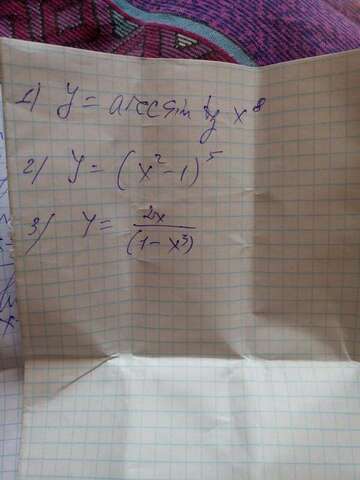 1) y = arcsin tg x⁸
2) y = (x² - 1)⁵
3) y = 2x / (1 - x³)